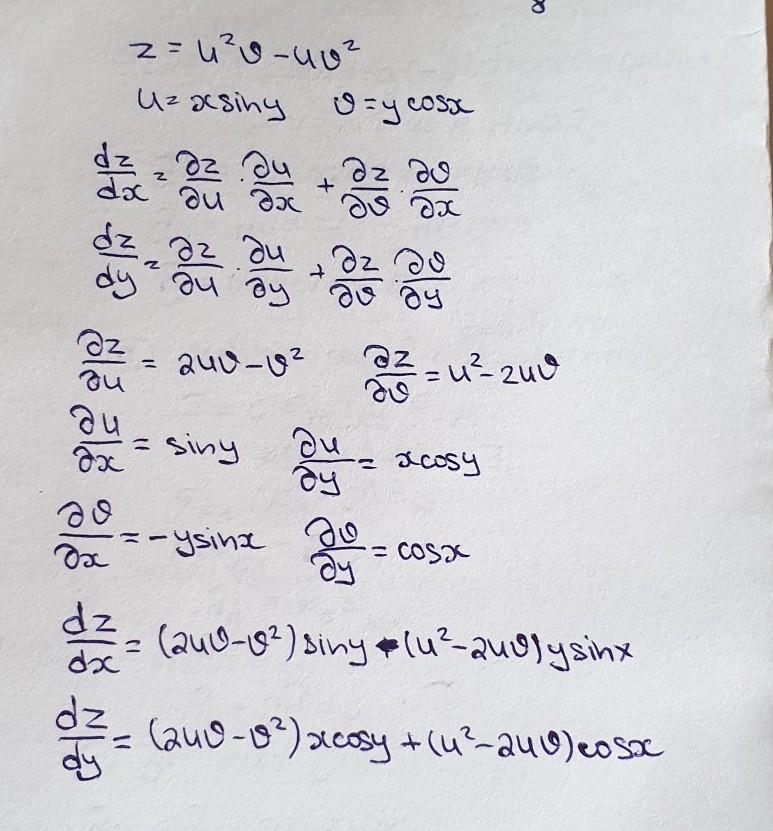 8
z = u²v - uv²
u = x sin y   v = y cos x
dz/dx = ∂z/∂u · ∂u/∂x + ∂z/∂v · ∂v/∂x
dz/dy = ∂z/∂u · ∂u/∂y + ∂z/∂v · ∂v/∂y
∂z/∂u = 2uv - v²   ∂z/∂v = u² - 2uv
∂u/∂x = sin y   ∂u/∂y = x cos y
∂v/∂x = - y sin x   ∂v/∂y = cos x
dz/dx = (2uv - v²) sin y - (u² - 2uv) y sin x
dz/dy = (2uv - v²) x cos y + (u² - 2uv) cos x